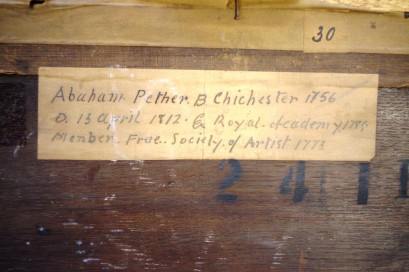 30
Abaham Pether. B Chichester 1756
D. 13 April 1812. Ex Royal. Academy 1784
Member. Free. Society. of Artist 1773
2411